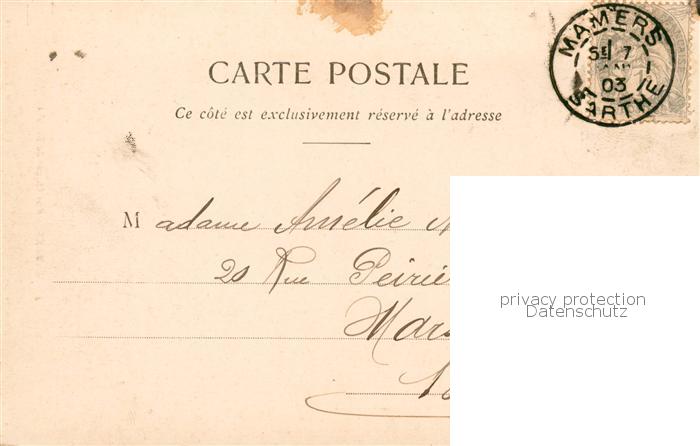 MAMERS
5E 7
03
SARTHE
CARTE POSTALE
Ce côté est exclusivement réservé à l'adresse
Madame Amélie
20 Rue
privacy protection
Datenschutz